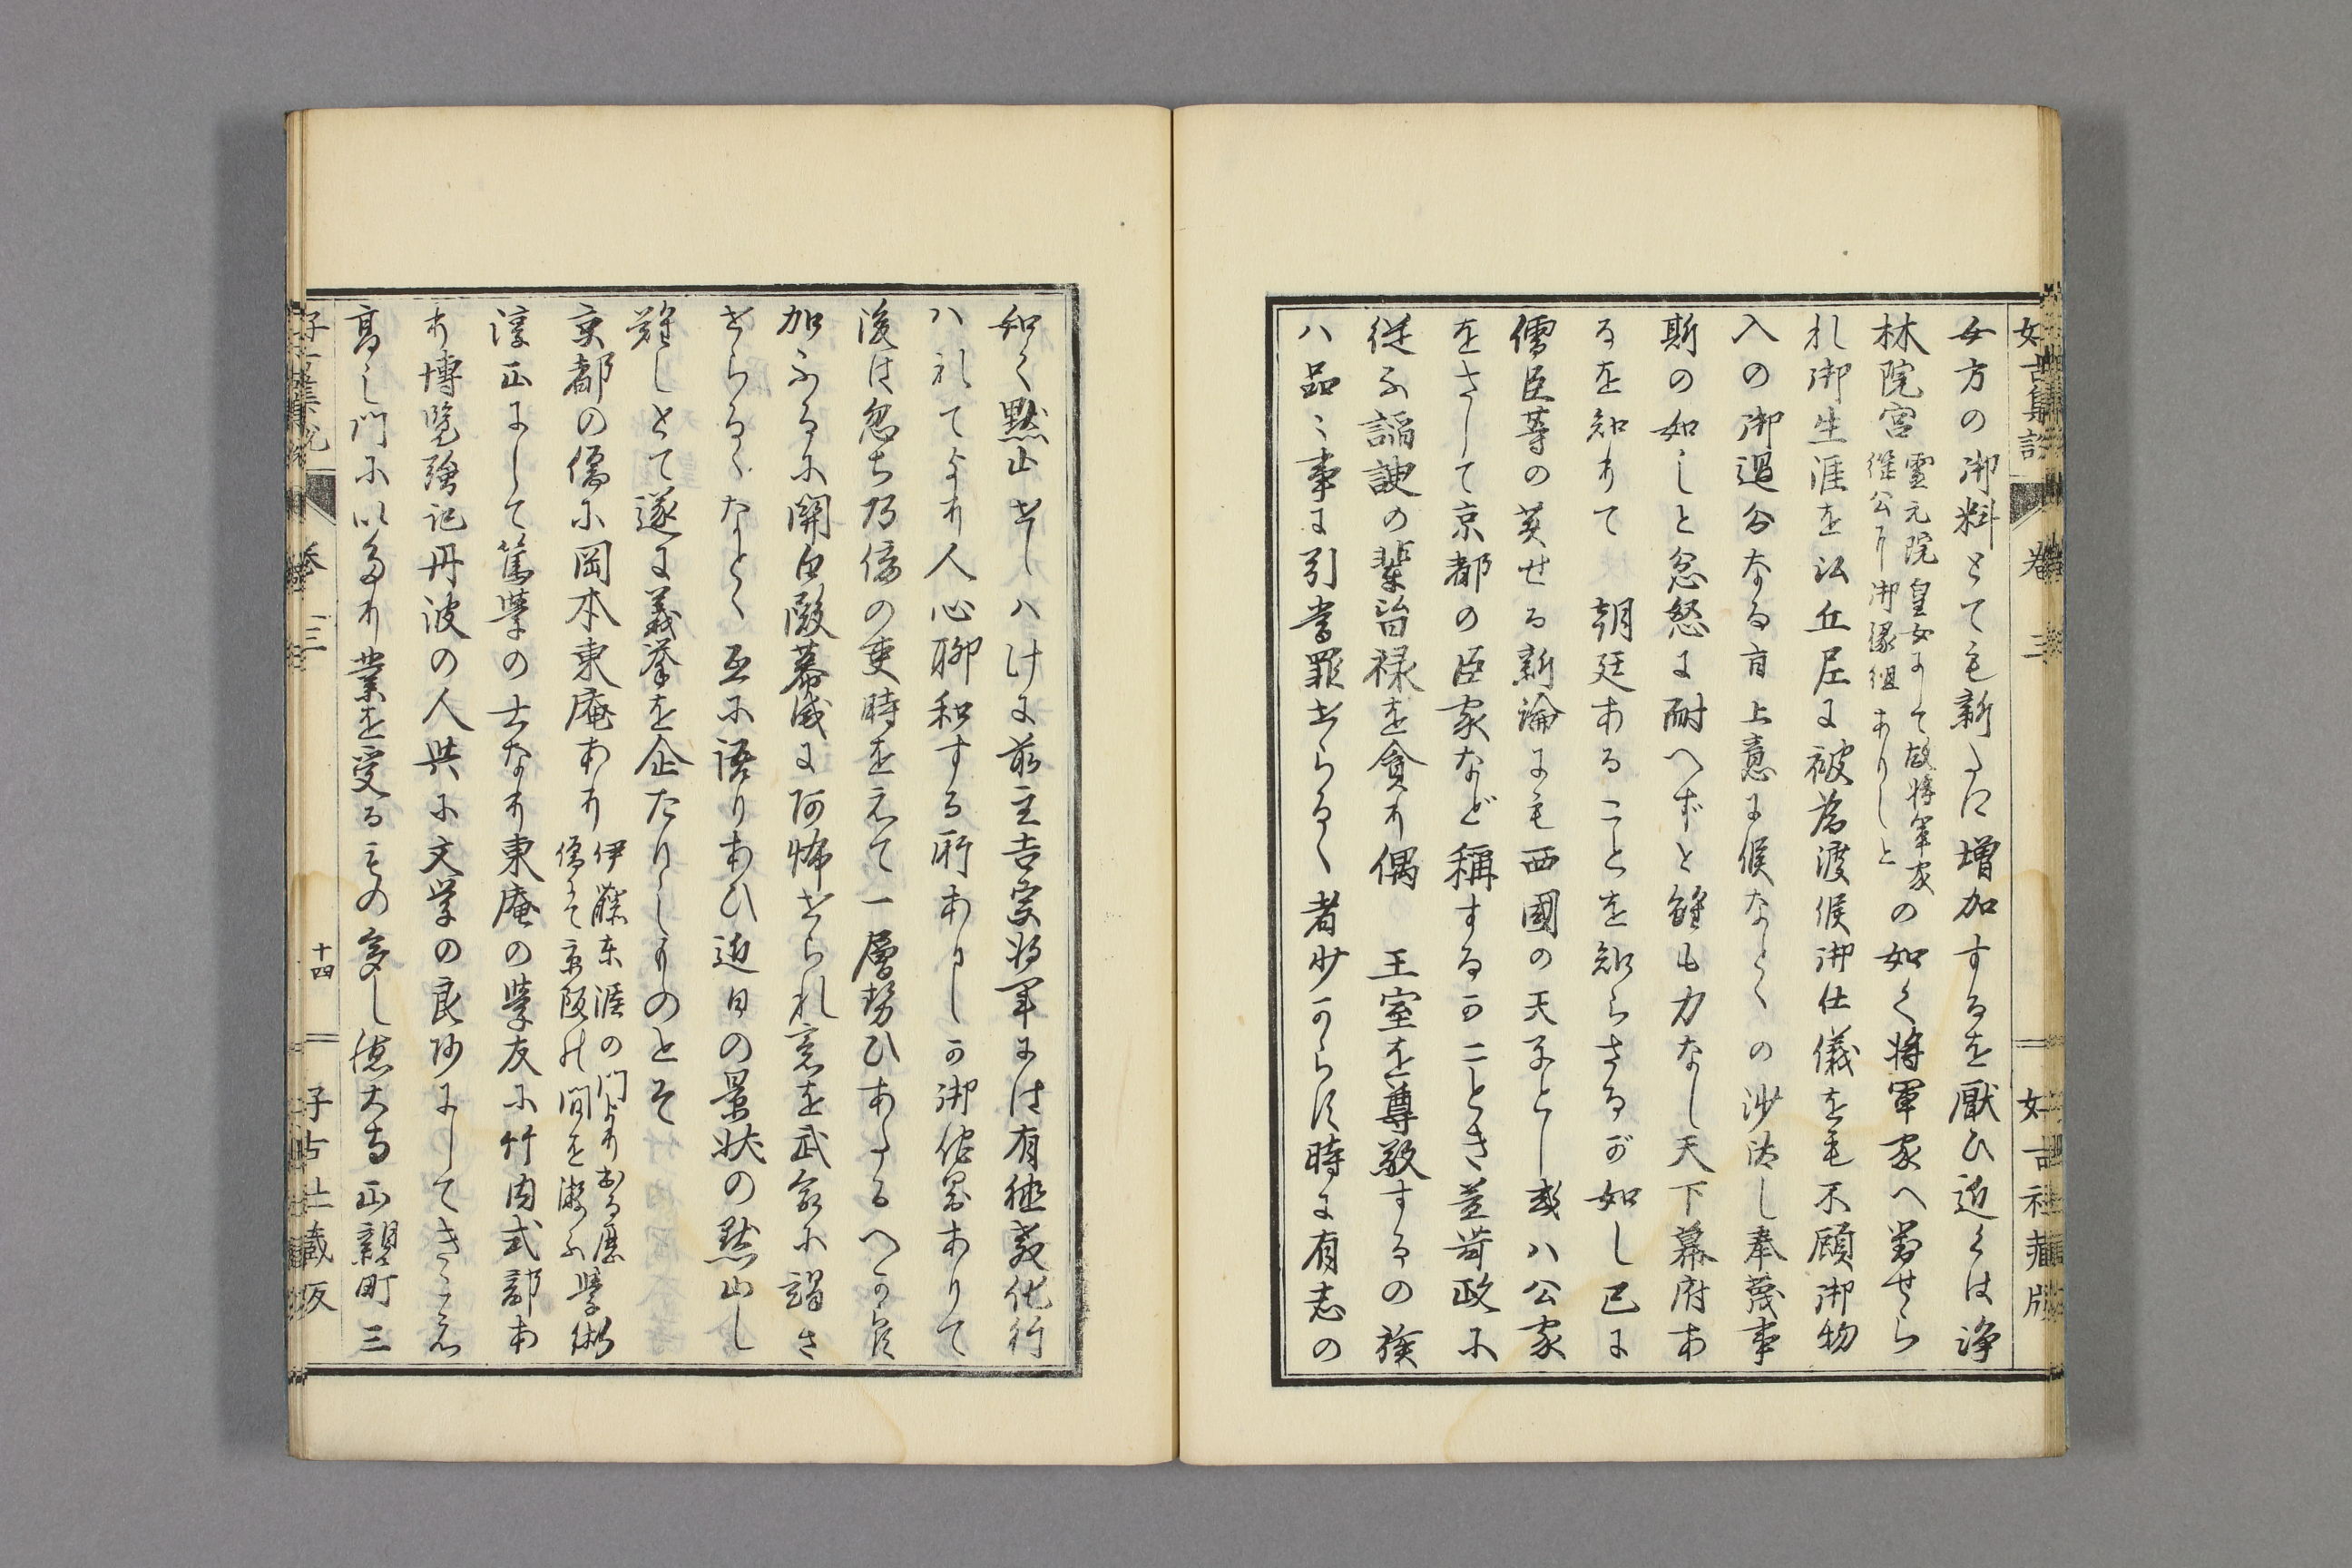 好古集説
巻三
好古社蔵版
女方の御料とても新たに増加するを厭ひ近くは浄
林院宮霊元院皇女にして故将軍家
継公に御縁組ありしとの如く将軍家へ対せら
れ御生涯を以丘尼に被為渡候御仕儀を毛不顧御物
入の御過分なる旨上意に候なとゝの沙汰し奉蔑事
斯の如しと忿怒に耐へずと雖も力なし天下幕府あ
るを知りて 朝廷あることを知らさるが如し已に
儒臣等の著せる新論にも西國の天子とし或ハ公家
をさして京都の臣家など稱するかことき並苛政に
従ふ謟諛の輩皆禄を貪り偶 王室を尊敬するの族
ハ品々事に引当罪せらるゝ者少からす時に有志の
如く黙止せしハけに前主吉宗将軍には有徳教化行
ハれてより人心聊和する所ありしか御佗界ありて
後は忽ち乃侫の吏時をえて一層勢ひあたるへからす
加ふるに関白殿幕威に阿怖せられ意を武家に謟さ
せらるゝなとゝ互に語りあひ近日の景状の黙止し
難しとて遂に義挙を企たりしものとそ
京都の儒に岡本東庵あり伊藤東涯の門より出る歴
儒にて京阪の間を遊ふ學術
淳正にして篤學の士なり東庵の學友に竹内式部あ
り博覧強記丹波の人共に文学の良師にしてきこえ
高し門に以多り業を受るもの多し徳大寺正親町三
好古集説
巻三
十四
好古社蔵版